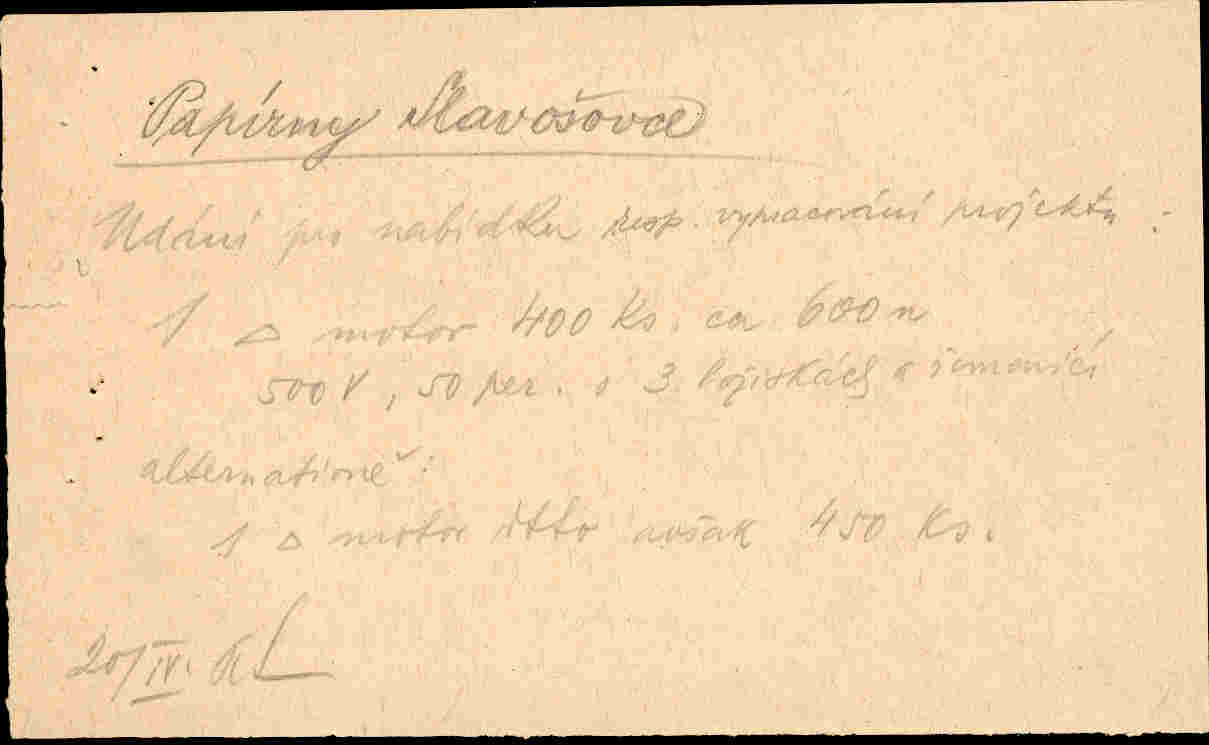 Papírny Slavošovce
Udání pro nabídku resp. vypracování projektu :
1 △ motor 400 Ks. ca 600 n
500 V, 50 per. o 3 ložiskách a řemenicí
alternativně :
1 △ motor dtto avšak 450 Ks.
20/IV.